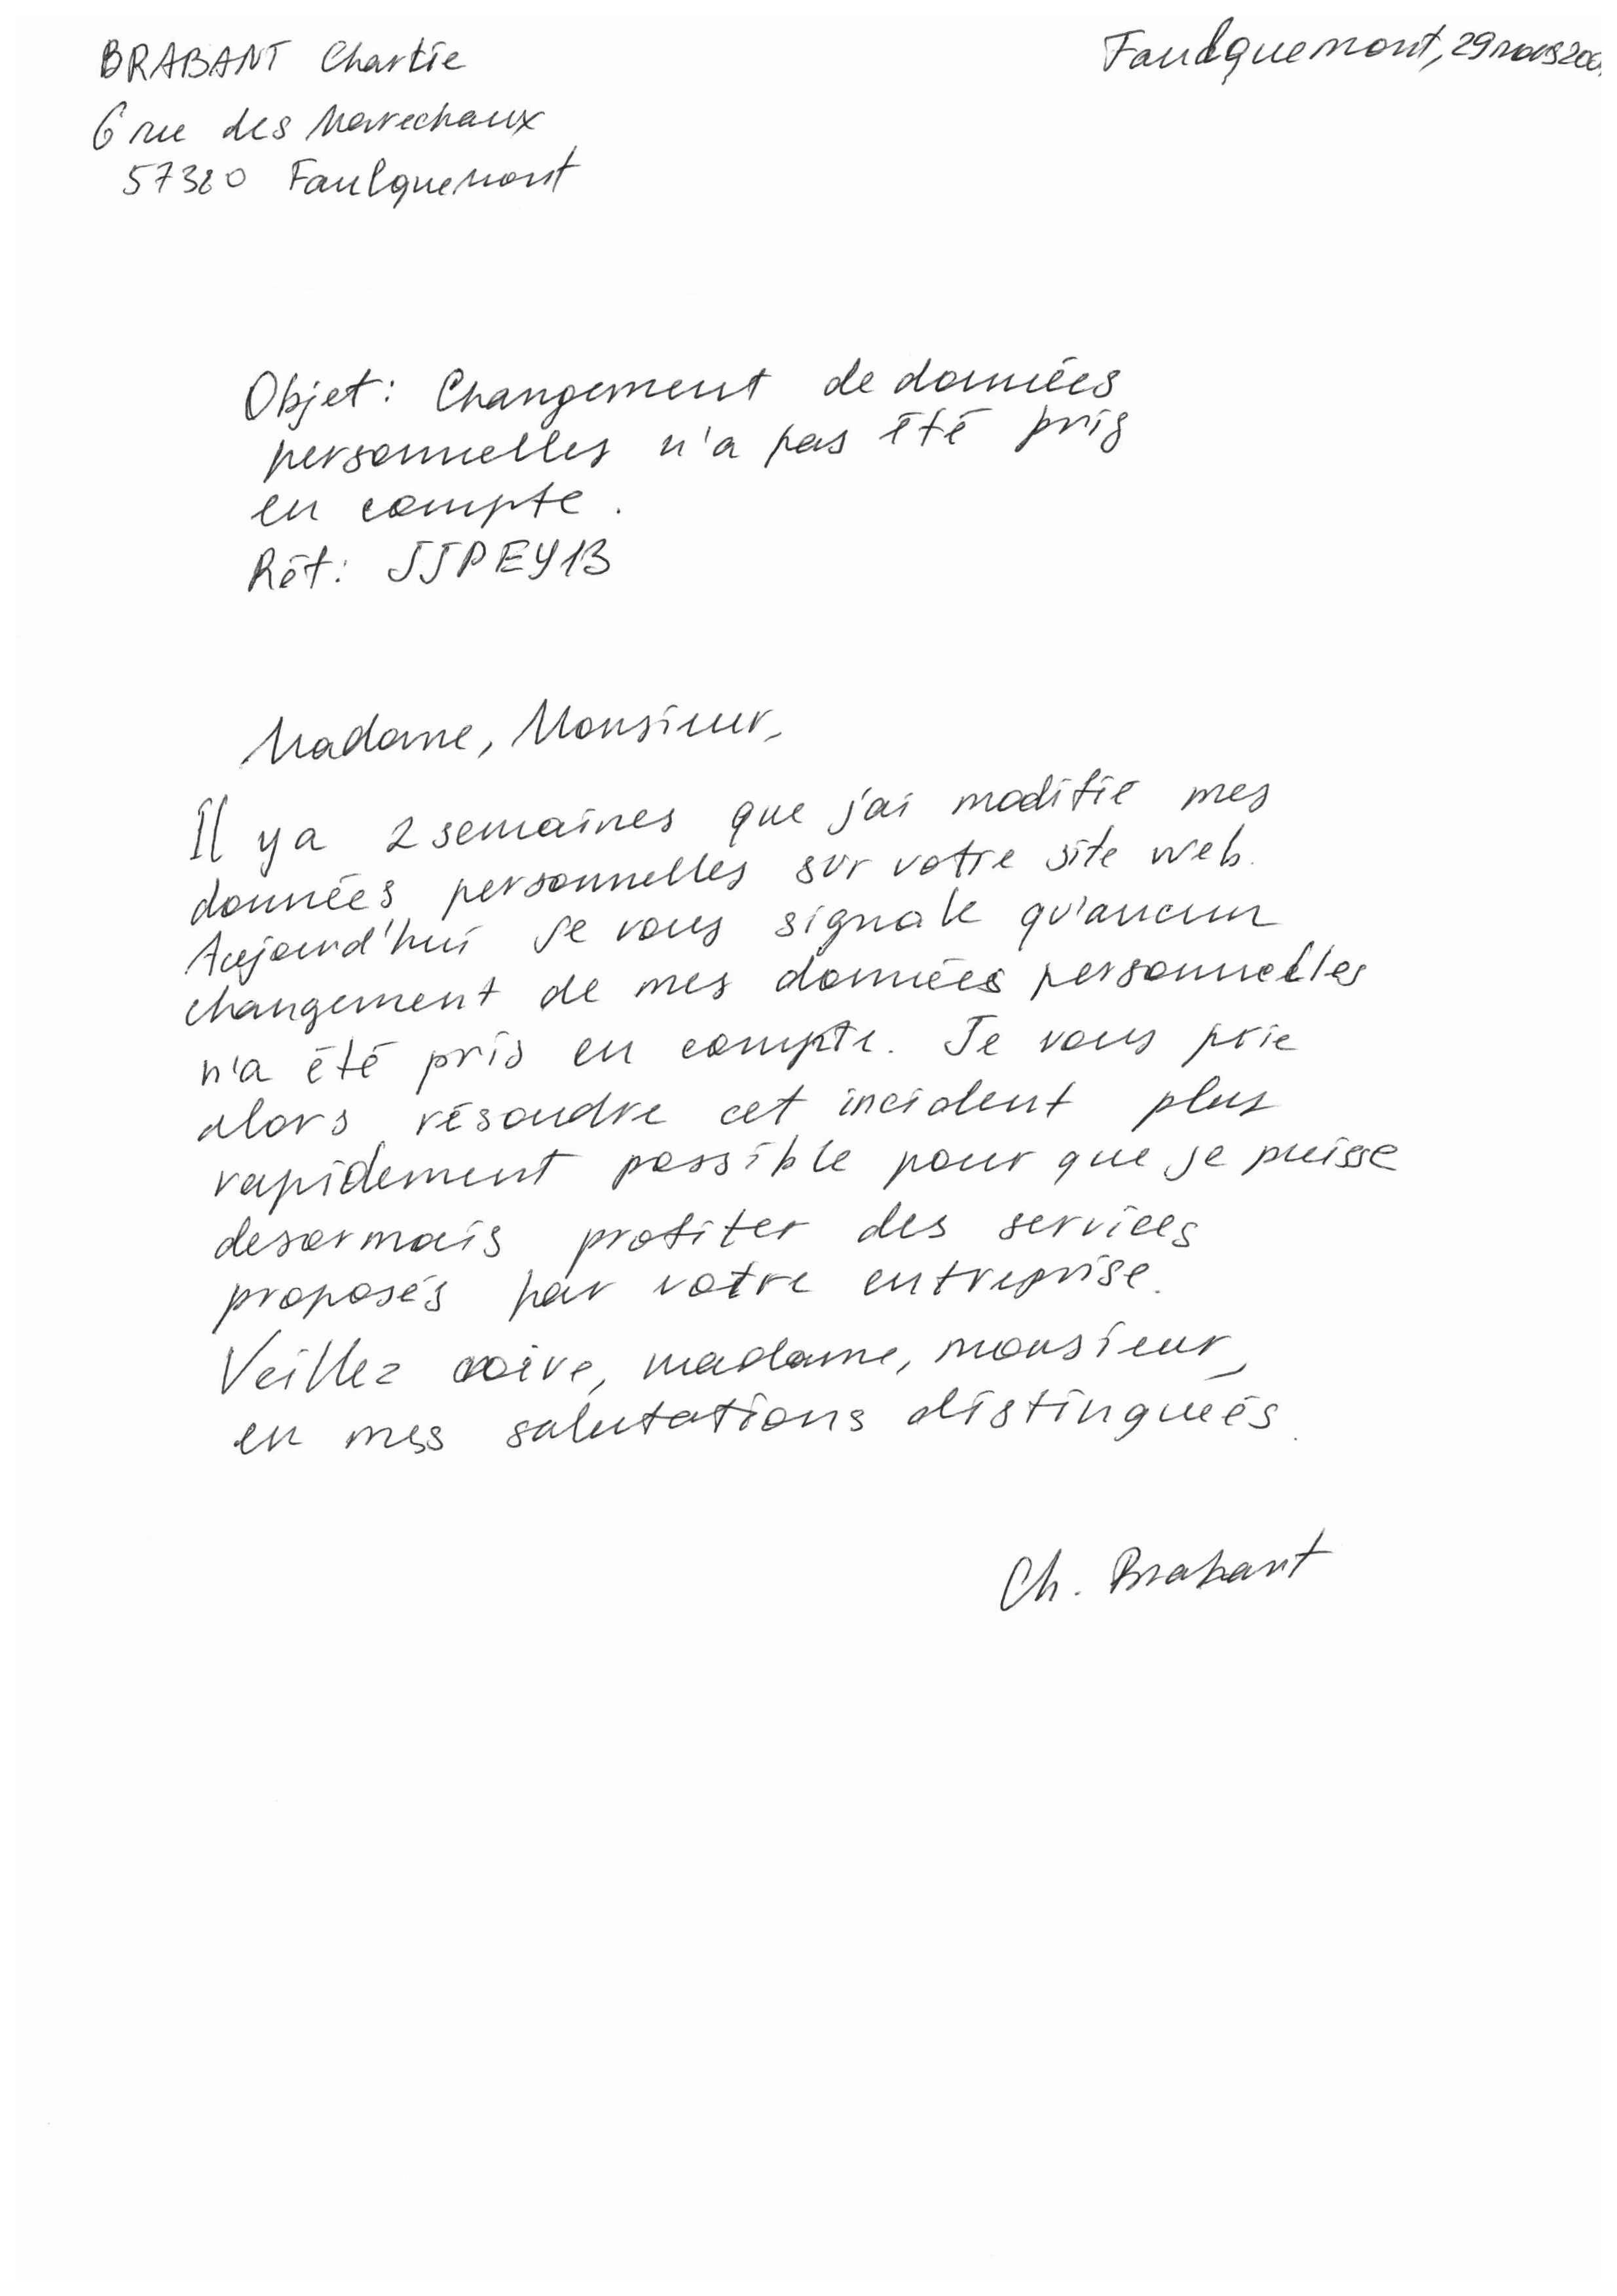 BRABANT Charlie
Faulquemont, 29
6 rue des Marechaux
57380 Faulquemont
Objet : Changement de données
personnelles n'a pas été pris
en compte.
Réf : JJPEY13
Madame, Monsieur,
Il y a 2 semaines que j'ai modifié mes
données personnelles sur votre site web.
Aujourd'hui je vous signale qu'aucun
changement de mes données personnelles
n'a été pris en compte. Je vous prie
alors résoudre cet incident plus
rapidement possible pour que je puisse
desormais profiter des services
proposés par votre entreprise.
Veillez croire, madame, monsieur,
en mes salutations distingueés.
Ch. Brabant